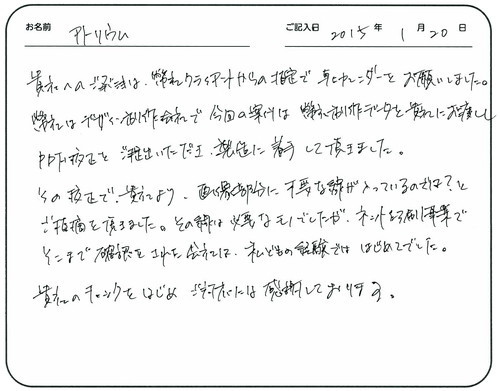 お名前 アトリウム ご記入日 2015年 1月20日
貴社へのご発注は、弊社クライアントからの指定で卓上カレンダーをお願いしました。
弊社はデザイン制作会社で今回の案件は弊社制作データを貴社にお渡しし
PDF校正をご提出いただき、製造に着手して頂きました。
その校正で、貴社より、画像部分に不要な線が入っているのでは?と
ご指摘を頂きました。その線は必要なモノでしたが、ネット印刷事業で
そこまで確認をされた会社は、私どもの経験でははじめてでした。
貴社のチェックをはじめ ご対応には感謝しております。